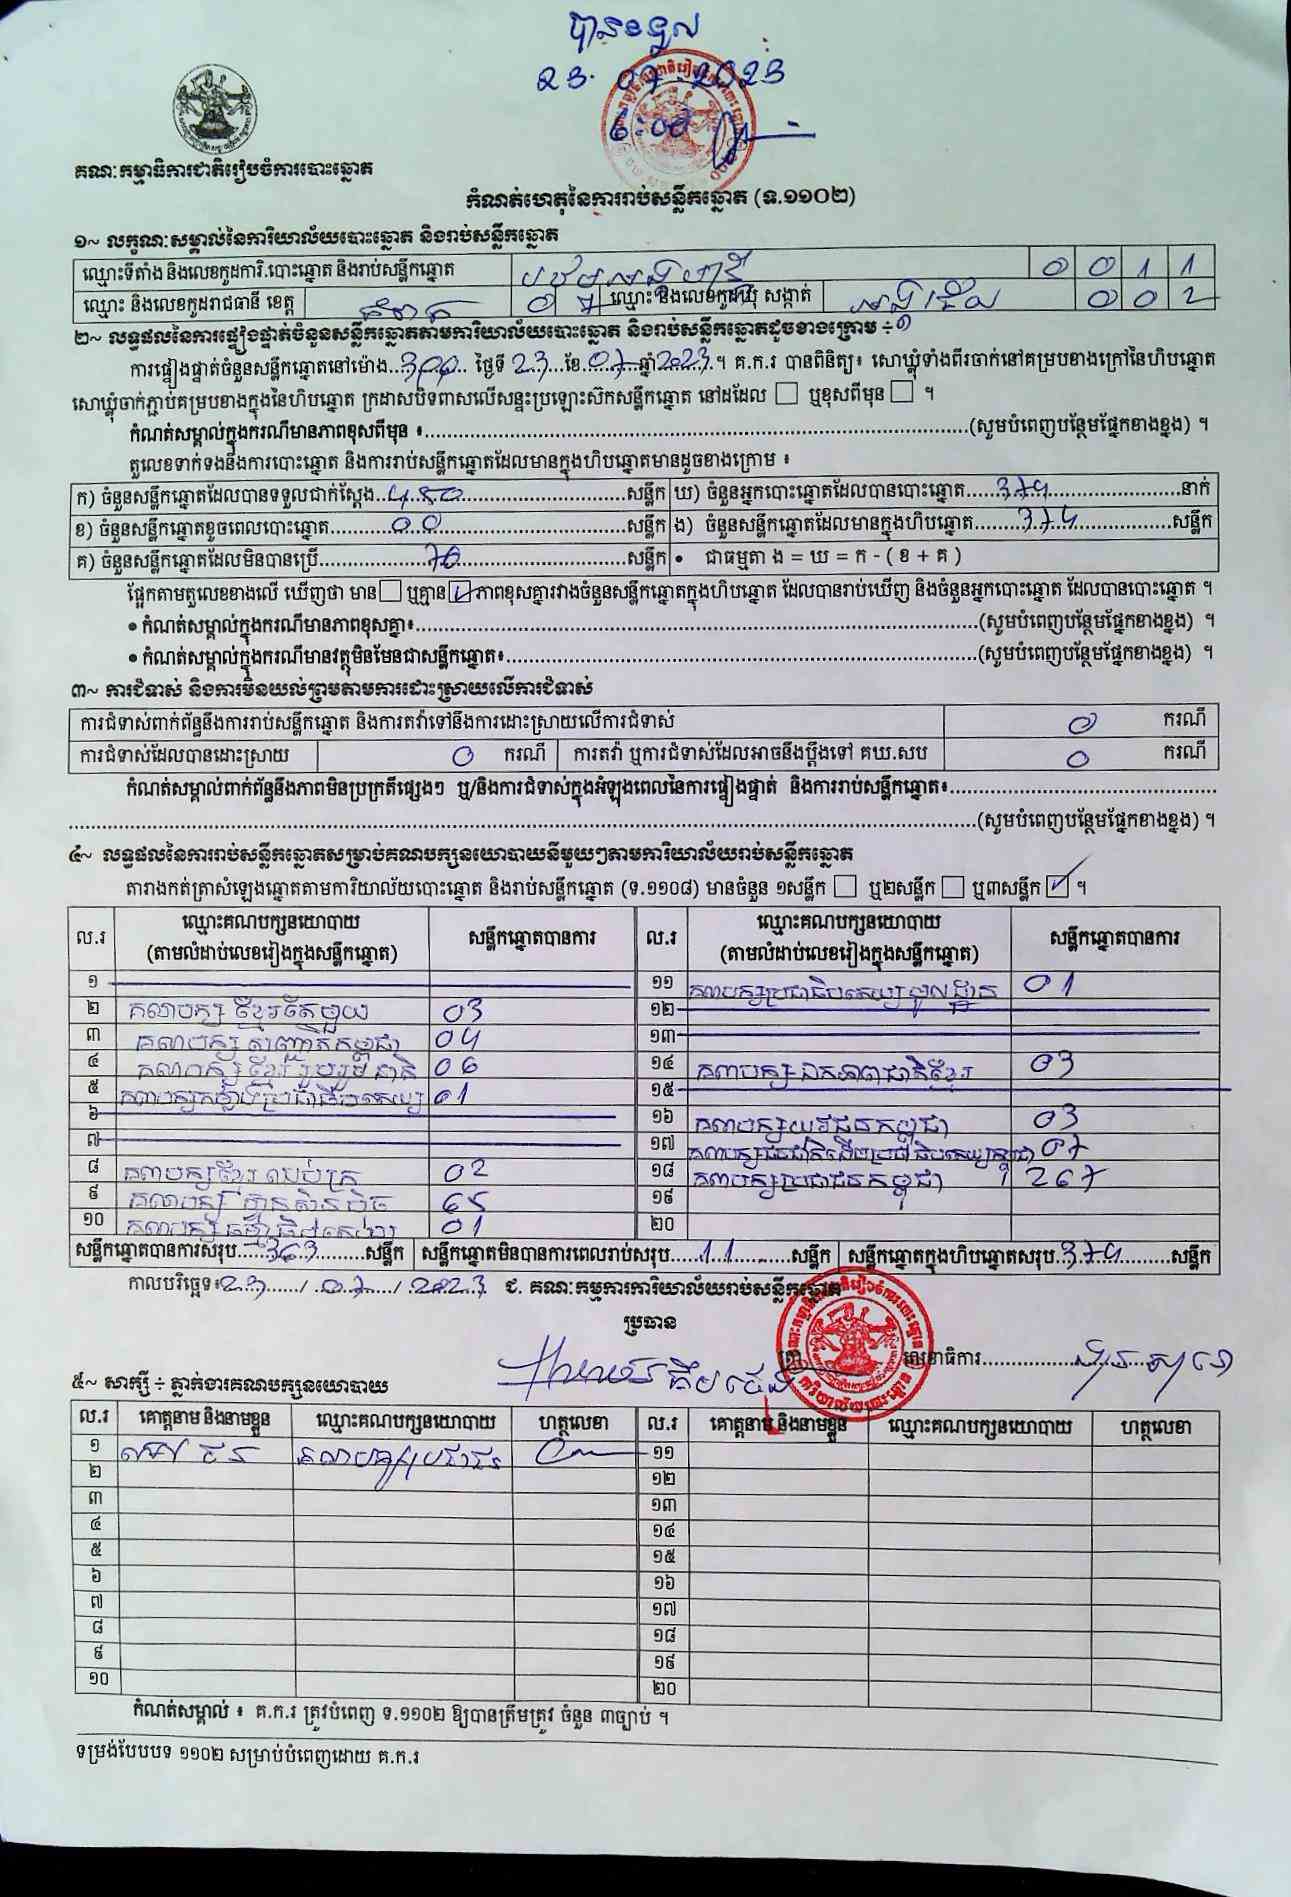 បានទទួល
23. 07. 2023
6:00
គណៈកម្មាធិការជាតិរៀបចំការបោះឆ្នោត
កំណត់ហេតុនៃការរាប់សន្លឹកឆ្នោត (ទ.១១០២)
១~ លក្ខណៈសម្គាល់នៃការិយាល័យបោះឆ្នោត និងរាប់សន្លឹកឆ្នោត
ឈ្មោះទីតាំង និងលេខកូដការិ.បោះឆ្នោត និងរាប់សន្លឹកឆ្នោត 0 0 1 1
ឈ្មោះ និងលេខកូដរាជធានី ខេត្ត កំពត 0 7 ឈ្មោះ និងលេខកូដឃុំ សង្កាត់ 0 0 2
២~ លទ្ធផលនៃការផ្ទៀងផ្ទាត់ចំនួនសន្លឹកឆ្នោតតាមការិយាល័យបោះឆ្នោត និងរាប់សន្លឹកឆ្នោតដូចខាងក្រោម ÷
ការផ្ទៀងផ្ទាត់ចំនួនសន្លឹកឆ្នោតនៅម៉ោង..3:00.. ថ្ងៃទី 23...ខែ.07...ឆ្នាំ 2023.។ គ.ក.រ បានពិនិត្យ៖ សោឃ្លុំទាំងពីរចាក់នៅគម្របខាងក្រៅនៃហិបឆ្នោត
សោឃ្លុំចាក់ភ្ជាប់គម្របខាងក្នុងនៃហិបឆ្នោត ក្រដាសបិទពាសលើសន្ទះប្រឡោះស៊កសន្លឹកឆ្នោត នៅដដែល ☐ ឬខុសពីមុន ☐ ។
កំណត់សម្គាល់ក្នុងករណីមានភាពខុសពីមុន ៖....................(សូមបំពេញបន្ថែមផ្នែកខាងខ្នង) ។
តួលេខទាក់ទងនឹងការបោះឆ្នោត និងការរាប់សន្លឹកឆ្នោតដែលមានក្នុងហិបឆ្នោតមានដូចខាងក្រោម ៖
ក) ចំនួនសន្លឹកឆ្នោតដែលបានទទួលជាក់ស្តែង..450....................សន្លឹក ឃ) ចំនួនអ្នកបោះឆ្នោតដែលបានបោះឆ្នោត......374....................នាក់
ខ) ចំនួនសន្លឹកឆ្នោតខូចពេលបោះឆ្នោត..........00....................សន្លឹក ង) ចំនួនសន្លឹកឆ្នោតដែលមានក្នុងហិបឆ្នោត........374....................សន្លឹក
គ) ចំនួនសន្លឹកឆ្នោតដែលមិនបានប្រើ....................76....................សន្លឹក • ជាធម្មតា ង = ឃ = ក - ( ខ + គ )
ផ្អែកតាមតួលេខខាងលើ ឃើញថា មាន ☐ ឬគ្មាន ☑ ភាពខុសគ្នារវាងចំនួនសន្លឹកឆ្នោតក្នុងហិបឆ្នោត ដែលបានរាប់ឃើញ និងចំនួនអ្នកបោះឆ្នោត ដែលបានបោះឆ្នោត ។
• កំណត់សម្គាល់ក្នុងករណីមានភាពខុសគ្នា៖....................(សូមបំពេញបន្ថែមផ្នែកខាងខ្នង) ។
• កំណត់សម្គាល់ក្នុងករណីមានវត្ថុមិនមែនជាសន្លឹកឆ្នោត៖....................(សូមបំពេញបន្ថែមផ្នែកខាងខ្នង) ។
៣~ ការជំទាស់ និងការមិនយល់ព្រមតាមការដោះស្រាយលើការជំទាស់
ការជំទាស់ពាក់ព័ន្ធនឹងការរាប់សន្លឹកឆ្នោត និងការតវ៉ាទៅនឹងការដោះស្រាយលើការជំទាស់ 0 ករណី
ការជំទាស់ដែលបានដោះស្រាយ 0 ករណី ការតវ៉ា ឬការជំទាស់ដែលអាចនឹងប្តឹងទៅ គឃ.សប 0 ករណី
កំណត់សម្គាល់ពាក់ព័ន្ធនឹងភាពមិនប្រក្រតីផ្សេងៗ ឬ/និងការជំទាស់ក្នុងអំឡុងពេលនៃការផ្ទៀងផ្ទាត់ និងការរាប់សន្លឹកឆ្នោត៖....................
....................(សូមបំពេញបន្ថែមផ្នែកខាងខ្នង) ។
៤~ លទ្ធផលនៃការរាប់សន្លឹកឆ្នោតសម្រាប់គណបក្សនយោបាយនីមួយៗតាមការិយាល័យរាប់សន្លឹកឆ្នោត
តារាងកត់ត្រាសំឡេងឆ្នោតតាមការិយាល័យបោះឆ្នោត និងរាប់សន្លឹកឆ្នោត (ទ.១១០៨) មានចំនួន ១សន្លឹក ☐ ឬ២សន្លឹក ☐ ឬ៣សន្លឹក ☑ ។
ល.រ ឈ្មោះគណបក្សនយោបាយ (តាមលំដាប់លេខរៀងក្នុងសន្លឹកឆ្នោត) សន្លឹកឆ្នោតបានការ ល.រ ឈ្មោះគណបក្សនយោបាយ (តាមលំដាប់លេខរៀងក្នុងសន្លឹកឆ្នោត) សន្លឹកឆ្នោតបានការ
១ ១១ គណបក្សប្រជាធិបតេយ្យមូលដ្ឋាន 01
២ គណបក្ស ខ្មែរតែមួយ 03 ១២
៣ គណបក្ស សញ្ជាតិកម្ពុជា 04 ១៣
៤ គណបក្ស ខ្មែរ រួបរួម ជាតិ 06 ១៤ គណបក្ស ឯកភាពជាតិខ្មែរ 03
៥ គណបក្សកម្លាំងប្រជាធិបតេយ្យ 01 ១៥
៦ ១៦ គណបក្សយុវជនកម្ពុជា 03
៧ ១៧ 07
៨ គណបក្សខ្មែរ ឈប់ក្រ 02 ១៨ គណបក្សប្រជាជនកម្ពុជា 267
៩ គណបក្ស ហ្វ៊ុនស៊ិនប៉ិច 65 ១៩
១០ គណបក្ស ធម្មាធិបតេយ្យ 01 ២០
សន្លឹកឆ្នោតបានការសរុប....363.........សន្លឹក សន្លឹកឆ្នោតមិនបានការពេលរាប់សរុប......11.........សន្លឹក សន្លឹកឆ្នោតក្នុងហិបឆ្នោតសរុប.374.........សន្លឹក
កាលបរិច្ឆេទ៖23....../.07....../.2023 ជ. គណៈកម្មការការិយាល័យរាប់សន្លឹកឆ្នោត
ប្រធាន
លេខាធិការ....................
៥~ សាក្សី ÷ ភ្នាក់ងារគណបក្សនយោបាយ
ល.រ គោត្តនាម និងនាមខ្លួន ឈ្មោះគណបក្សនយោបាយ ហត្ថលេខា ល.រ គោត្តនាម និងនាមខ្លួន ឈ្មោះគណបក្សនយោបាយ ហត្ថលេខា
១ គណបក្សប្រជាជន ១១
២ ១២
៣ ១៣
៤ ១៤
៥ ១៥
៦ ១៦
៧ ១៧
៨ ១៨
៩ ១៩
១០ ២០
កំណត់សម្គាល់ ៖ គ.ក.រ ត្រូវបំពេញ ទ.១១០២ ឱ្យបានត្រឹមត្រូវ ចំនួន ៣ច្បាប់ ។
ទម្រង់បែបបទ ១១០២ សម្រាប់បំពេញដោយ គ.ក.រ